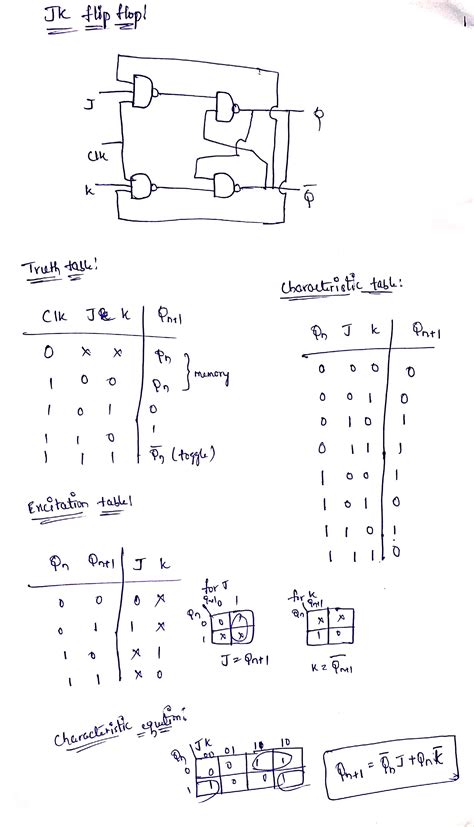 JK flip flop!
1
J
Clk
K
Q
Q̅
Truth table!
Clk J K Qn+1
0 x x Qn
1 0 0 Qn
} memory
1 0 1 0
1 1 0 1
1 1 1 Q̅n (toggle)
Characteristic table:
Qn J K Qn+1
0 0 0 0
0 0 1 0
0 1 0 1
0 1 1 1
1 0 0 1
1 0 1 0
1 1 0 1
1 1 1 0
Excitation table!
Qn Qn+1 J K
0 0 0 x
0 1 1 x
1 0 x 1
1 1 x 0
for J
Qn Qn+1 0 1
0 0 1
1 x x
J = Qn+1
for K
Qn Qn+1
x x
1 0
K = Q̅n+1
Characteristic equation:
Qn JK 00 01 10
0 0 0 1 1
1 1 0 0 1
Qn+1 = Q̅n J + Qn K̅